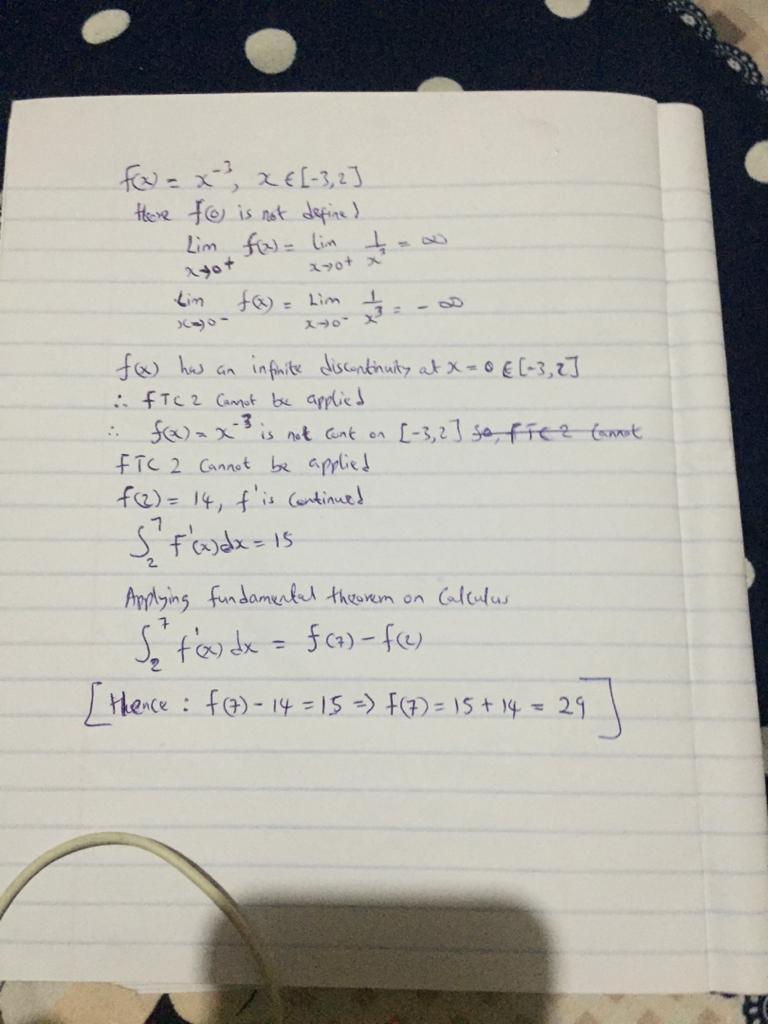 f(x) = x⁻³, x ∈ [-3,2]
Here f(0) is not defined
Lim x→0⁺ f(x) = lim x→0⁺ 1/x³ = ∞
Lim x→0⁻ f(x) = Lim x→0⁻ 1/x³ = - ∞
f(x) has an infinite discontinuity at x = 0 ∈ [-3,2]
∴ FTC 2 cannot be applied
∴ f(x) = x⁻³ is not cont on [-3,2] ~~So, FTC 2 Cannot~~
FTC 2 Cannot be applied
f(2) = 14, f' is Continued
∫₂⁷ f'(x)dx = 15
Applying fundamental theorem on Calculus
∫₂⁷ f'(x) dx = f(7) - f(2)
[Hence : f(7) - 14 = 15 => f(7) = 15 + 14 = 29]